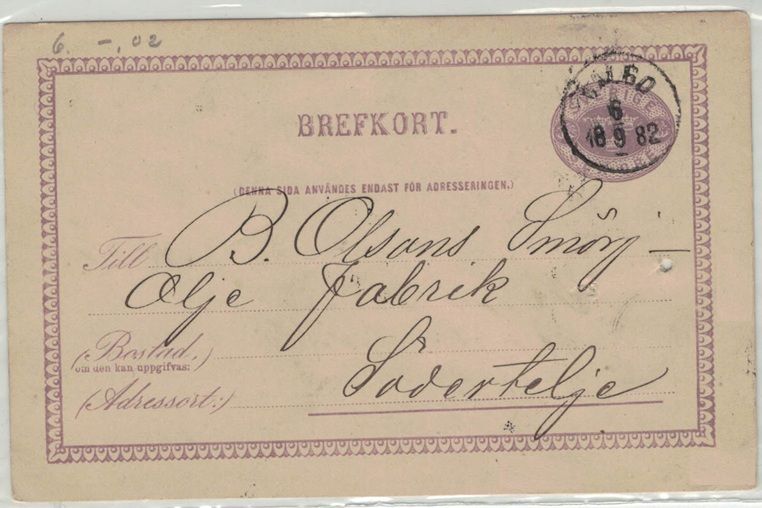 6. –. 02
BREFKORT.
6
18 9 82
(DENNA SIDA ANVÄNDES ENDAST FÖR ADRESSERINGEN.)
Till B. Olsons Smörj–
Olje Fabrik
(Bostad,)
om den kan uppgifvas:
(Adressort:) Södertelje